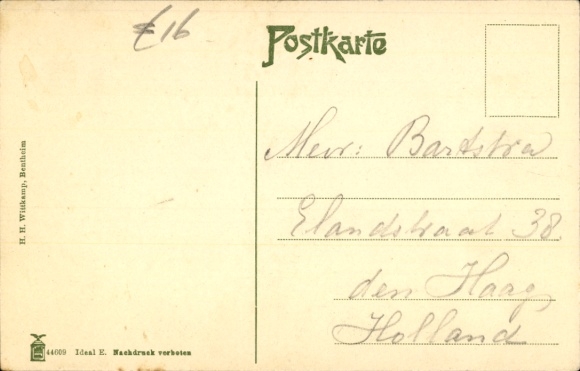 €16
Postkarte
Mevr: Bartstra
Elandstraat 38
den Haag,
Holland
H. H. Wittkamp, Bentheim
44009 Ideal E. Nachdruck verboten